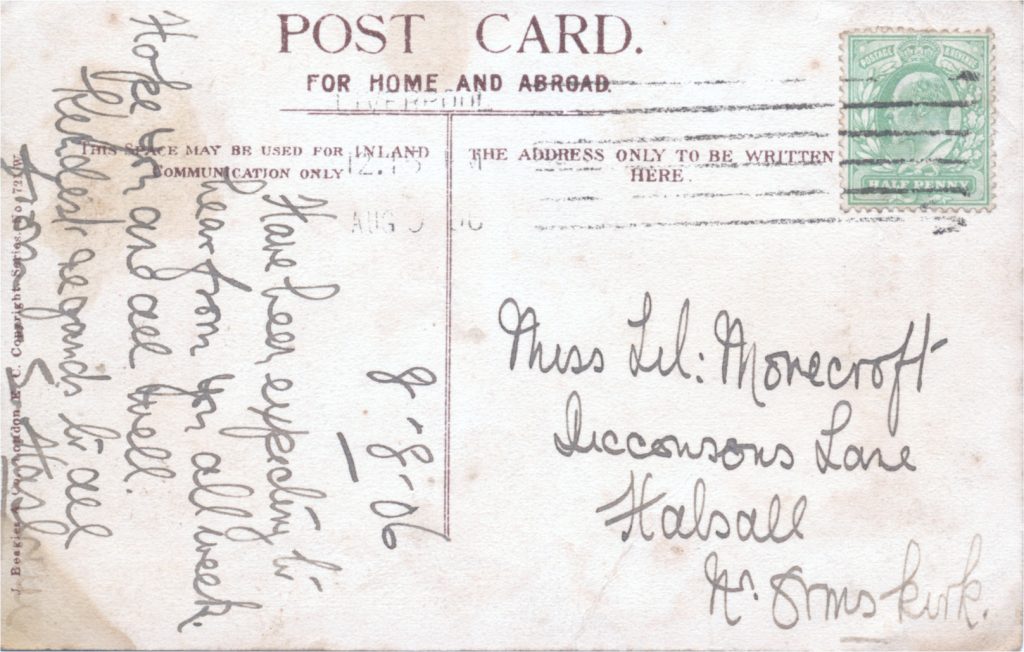 POST CARD.
FOR HOME AND ABROAD.
LIVERPOOL
THIS SPACE MAY BE USED FOR INLAND
COMMUNICATION ONLY
THE ADDRESS ONLY TO BE WRITTEN
HERE.
12.15
AUG 06
HALF PENNY
8-8-06
Have been expecting to
hear from you all week.
Hope you are all well.
Kindest regards to all
from
Miss Lil: Morecroft
Dicconsons Lane
Halsall
Nr. Ormskirk.
London E.C. Copyright Series